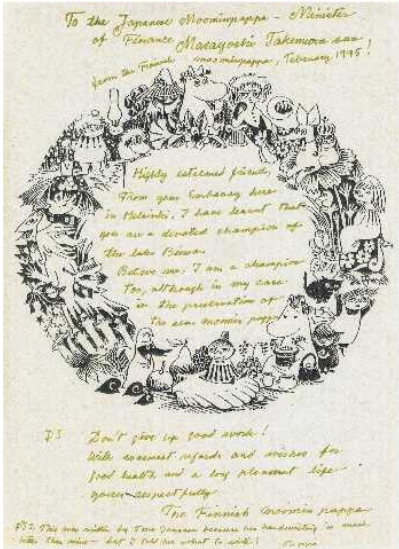 To the Japanese Moominpappa - Minister
of Finance Masayoshi Takemura san!
from the Finnish moominpappa, February 1995
Highly esteemed friend,
From your Embassy here
in Helsinki, I have learnt that
you are a devoted champion of
the lake Biwa.
Believe me, I am a champion
too, although in my case
in the preservation of
the sea. moomin pappa
PS Don't give up good work!
With warmest regards and wishes for
good health and a long pleasant life
yours respectfully
The Finnish moomin pappa
PS 2. This was written by Tove Jansson because her handwriting is much
better than mine - but I told her what to write!